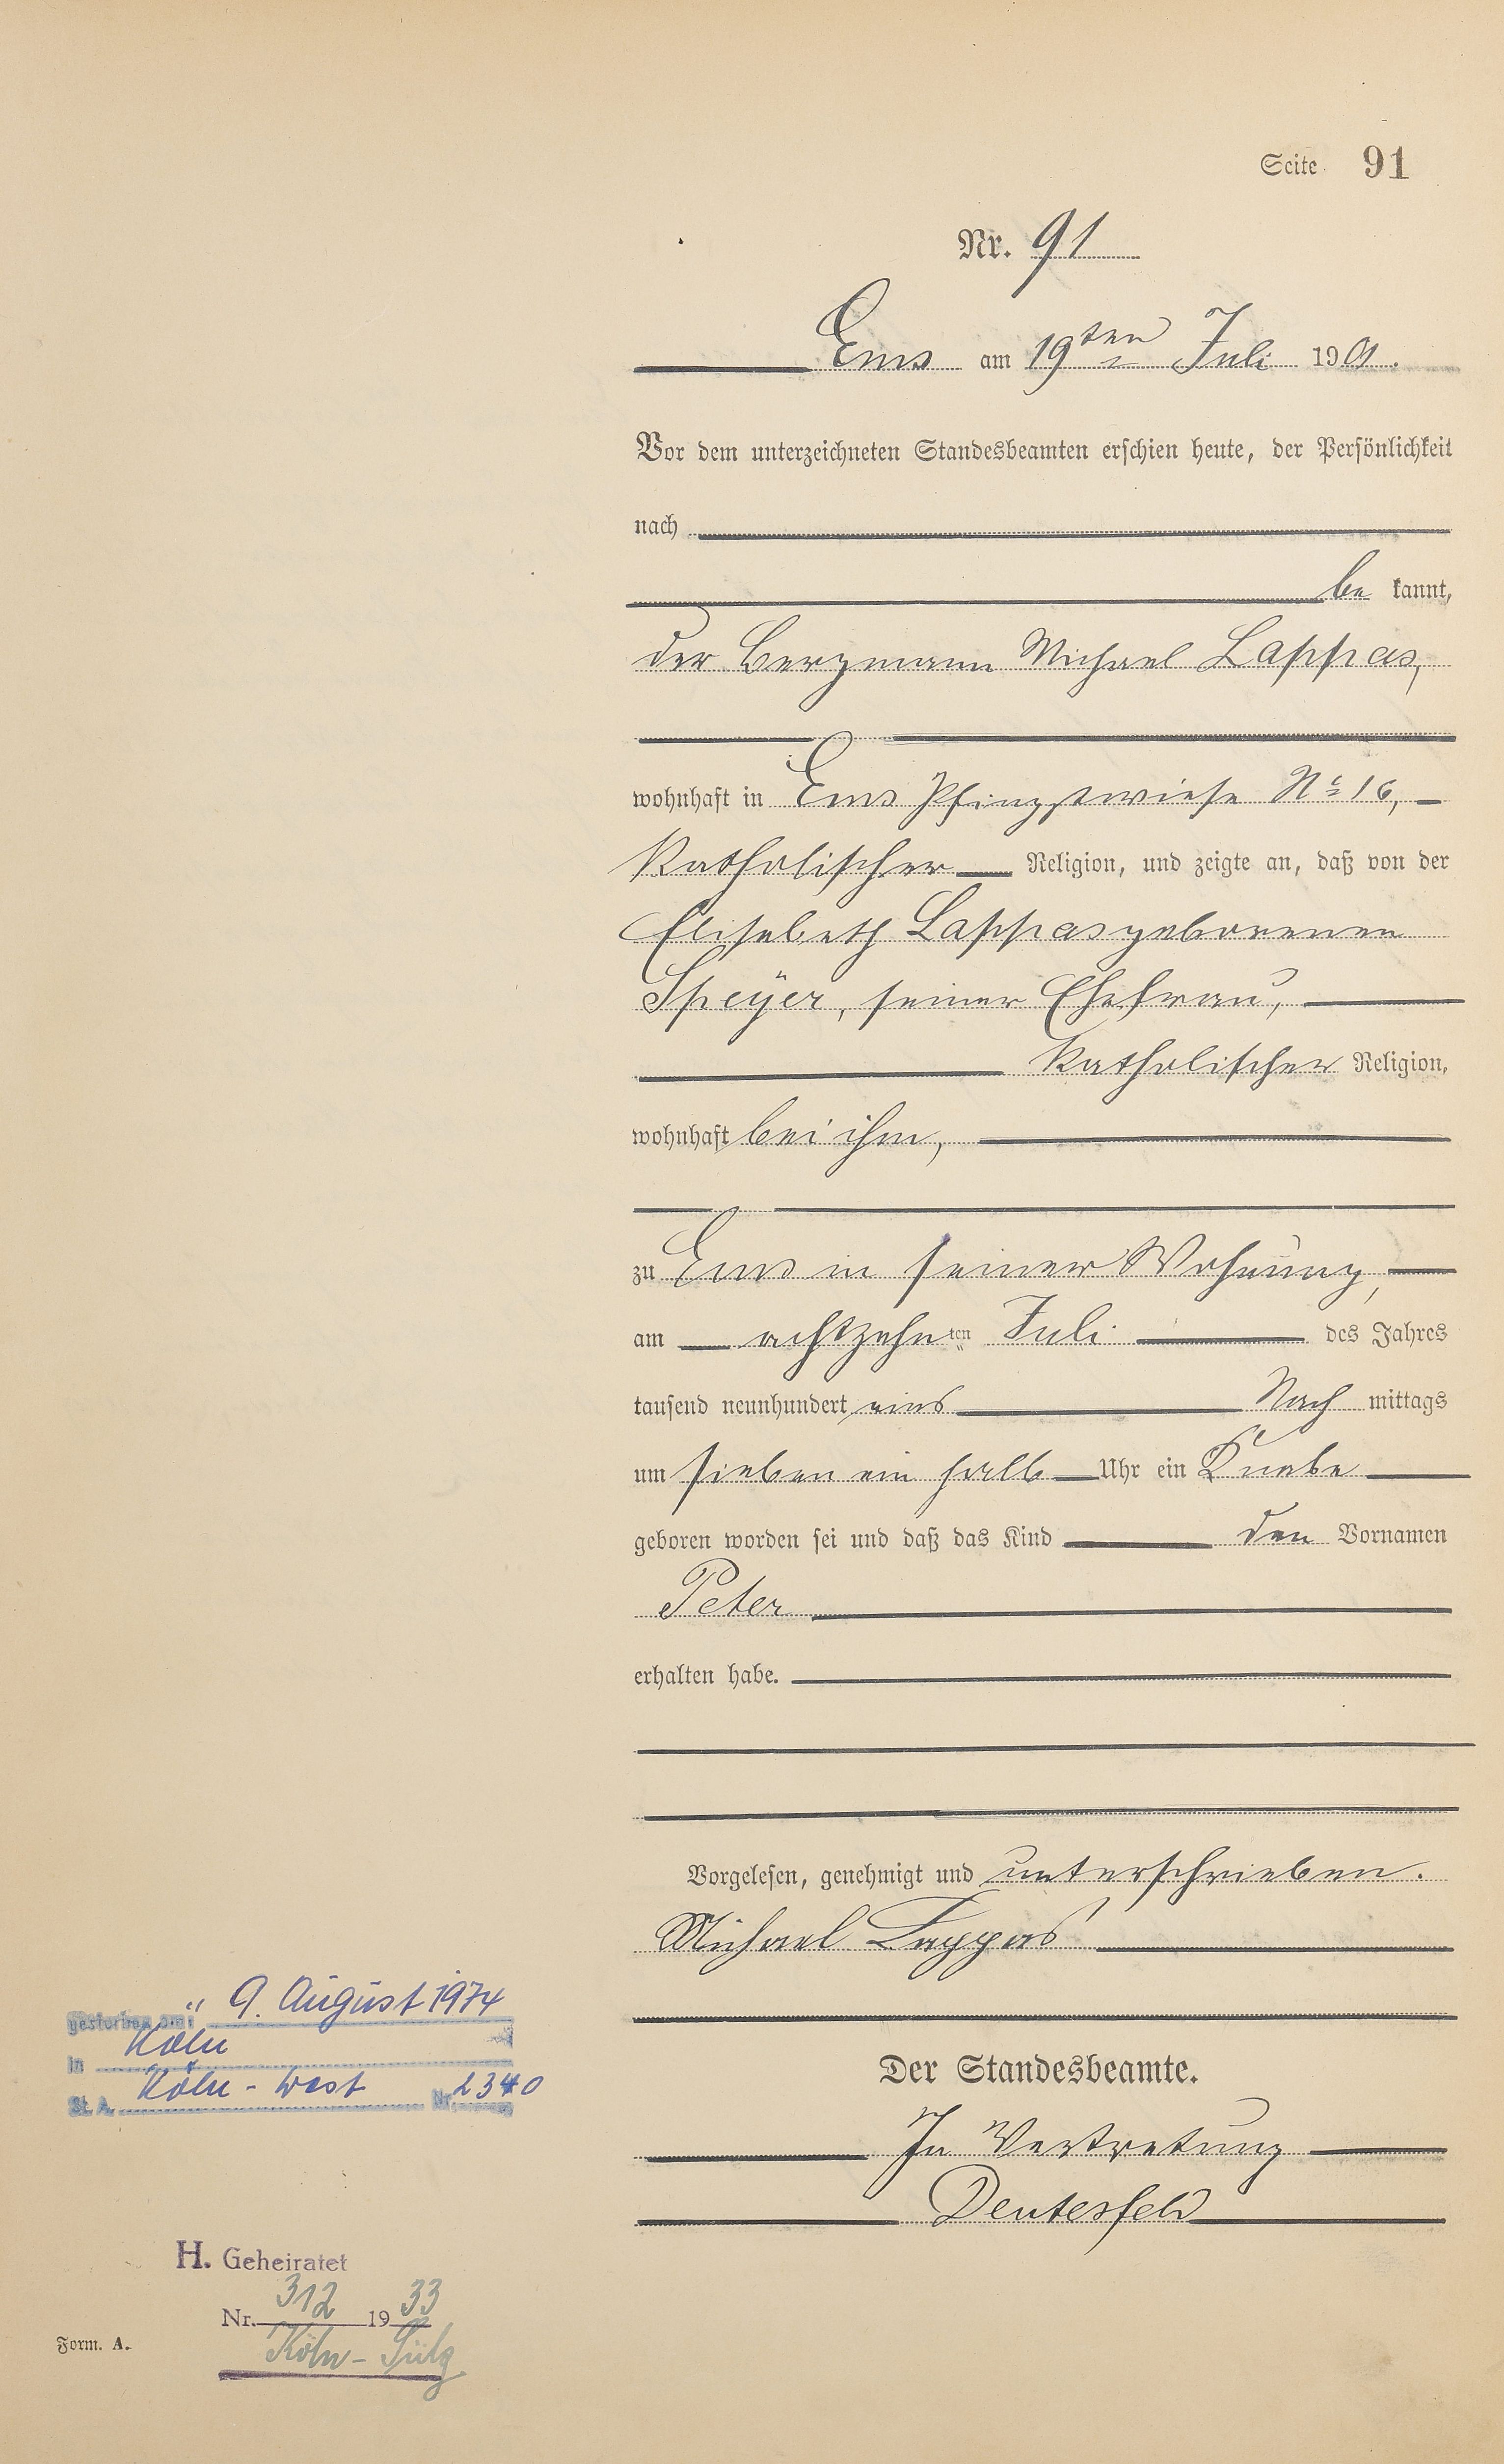 Seite 91
Nr. 91
Ems am 19ten Juli 1901.
Vor dem unterzeichneten Standesbeamten erschien heute, der Persönlichkeit
nach
be kannt,
der Bergmann Michael Lappas,
wohnhaft in Ems Pfingstwiese No 16,
katholischer Religion, und zeigte an, daß von der
Elisabeth Lappas geborenen
Speÿer, seiner Ehefrau,
katholischer Religion,
wohnhaft bei ihm,
zu Ems in seiner Wohnung,
am achtzehnten Juli des Jahres
tausend neunhundert eins Nach mittags
um sieben ein halb Uhr ein Knabe
geboren worden sei und daß das Kind den Vornamen
Peter
erhalten habe.
Vorgelesen, genehmigt und unterschrieben.
Michael Lappas
Der Standesbeamte.
In Vertretung
Deutesfeld
gestorben am: 9. August 1974
in Köln
St. A. Köln-West Nr. 2340
H. Geheiratet
Nr. 312 1933
Köln-Sülz
Form. A.